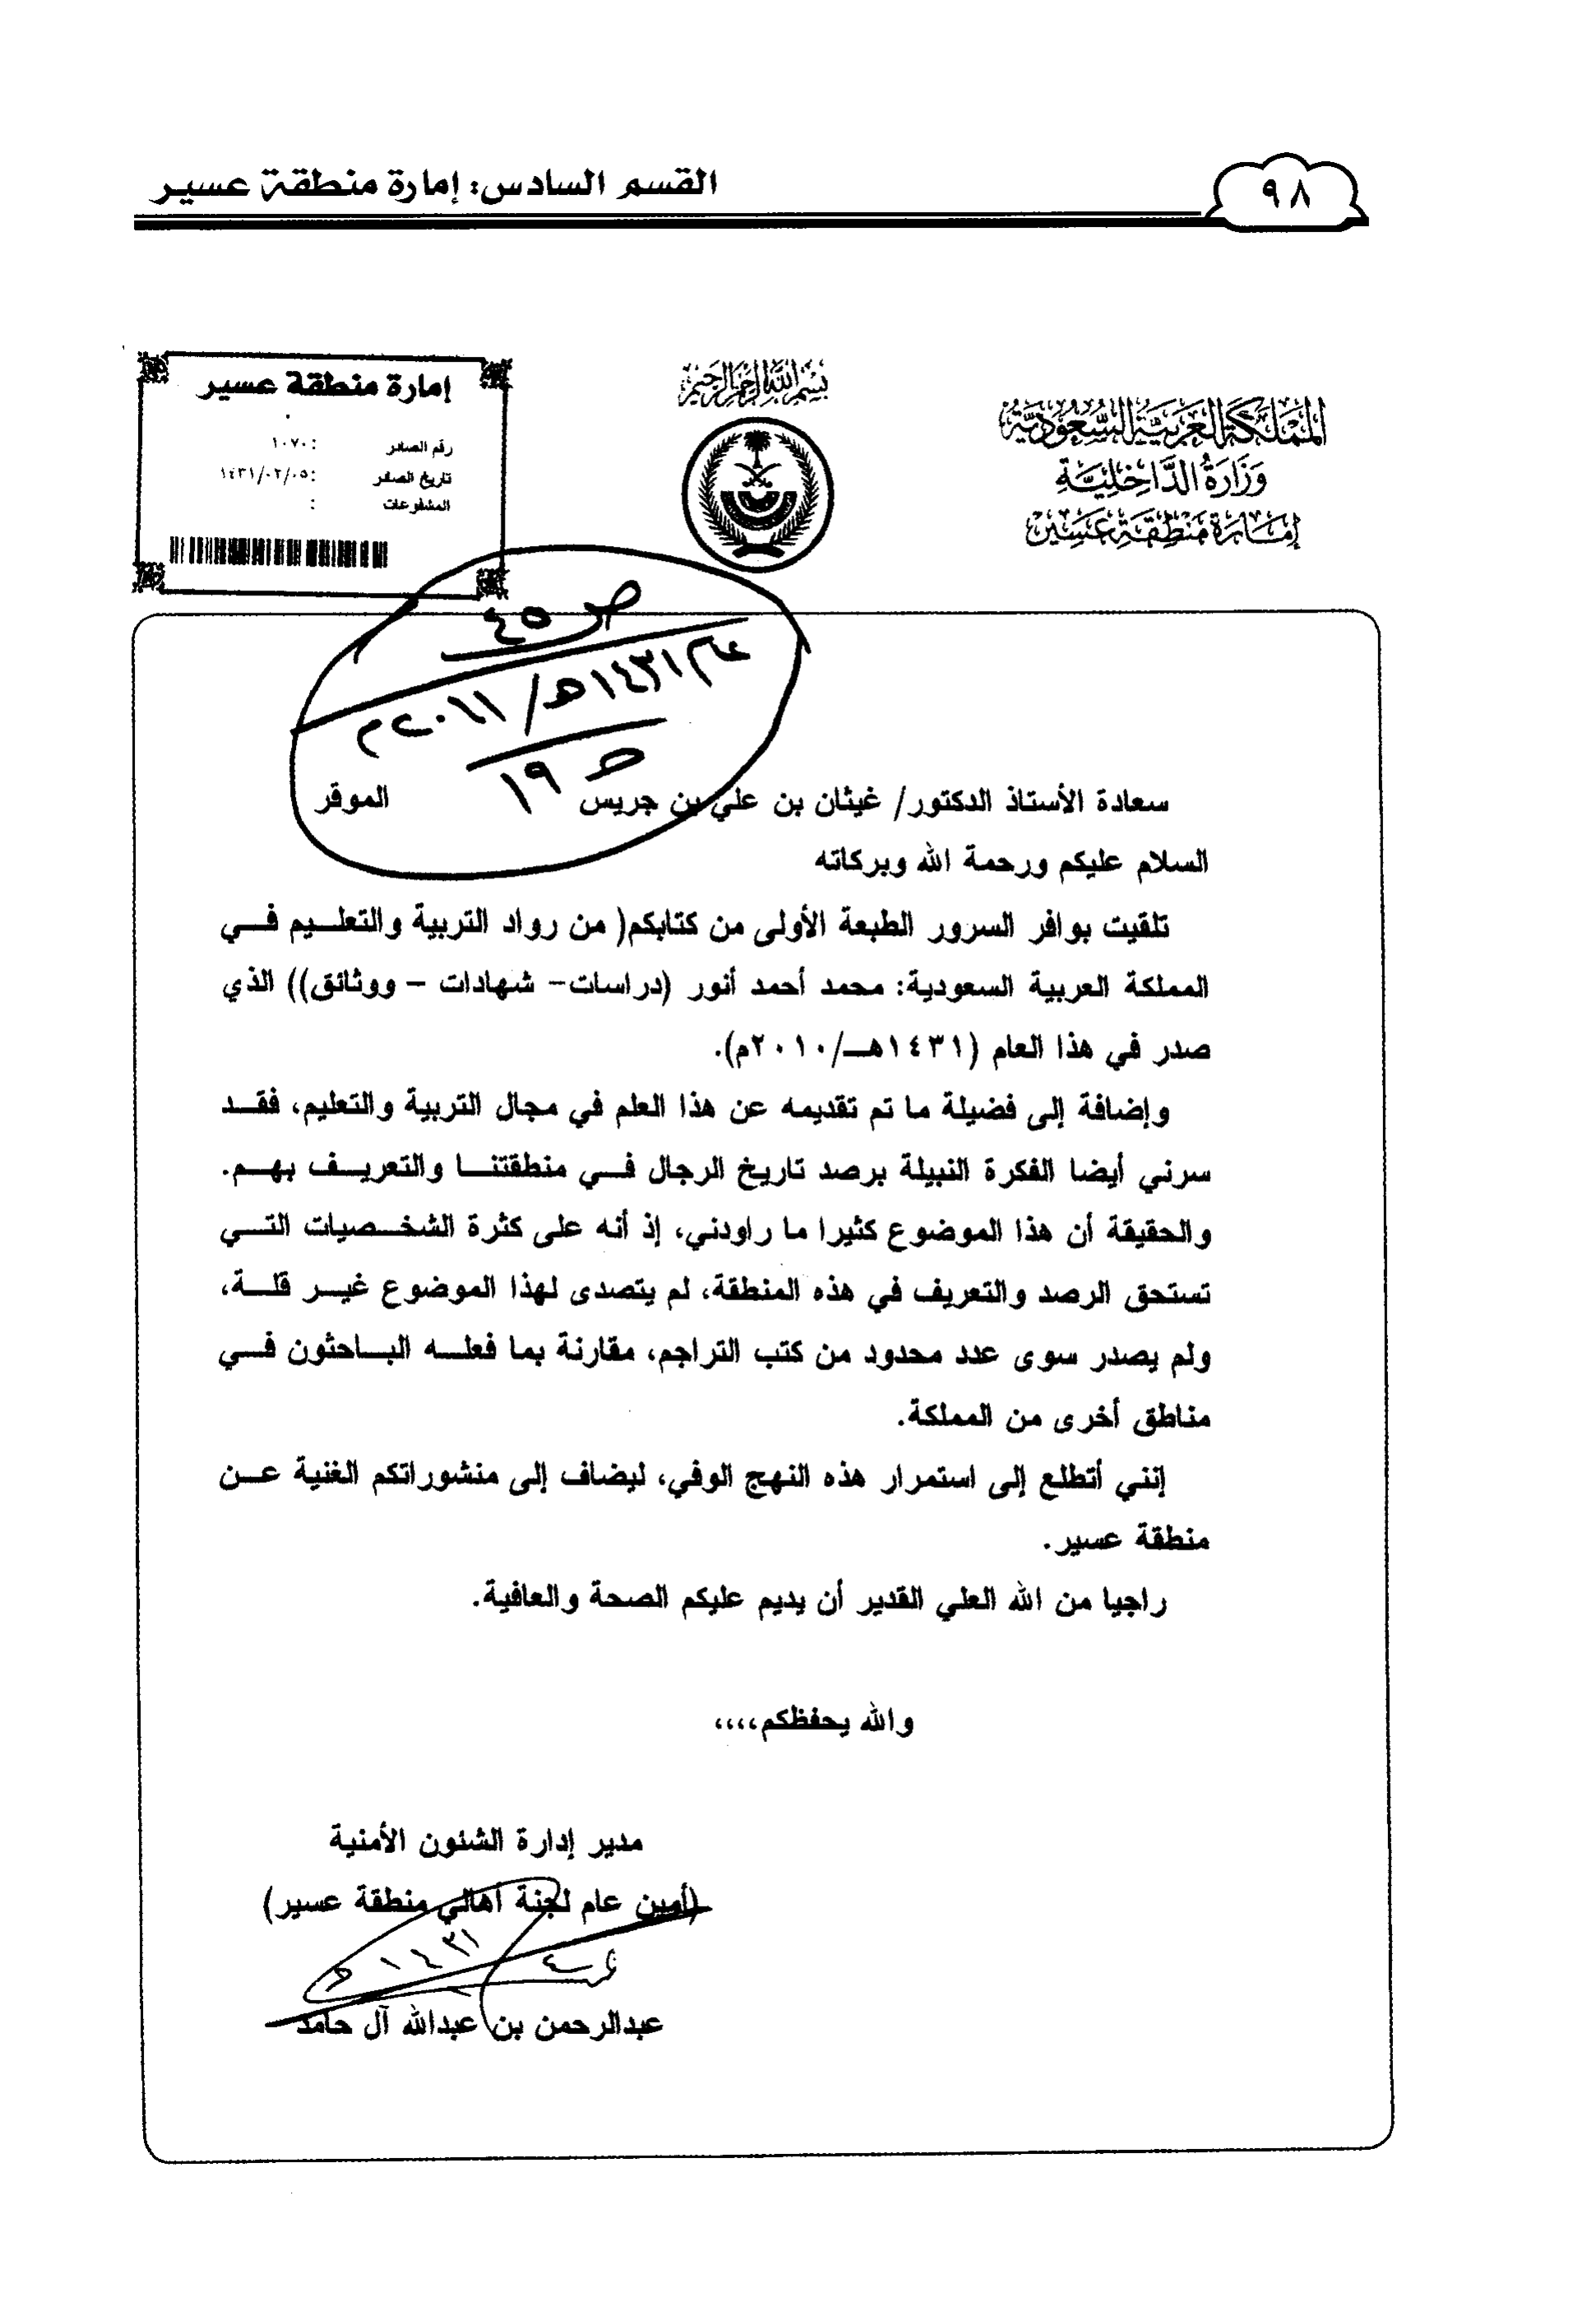 القسم السادس: إمارة منطقة عسير
٩٨
بسم الله الرحمن الرحيم
المملكة العربية السعودية
وزارة الداخلية
إمارة منطقة عسير
إمارة منطقة عسير
رقم الصادر : ١٠٧٠
تاريخ الصادر : ١٤٣١/٠٢/٠٥
المشفوعات :
ص ٤٥
عام ١٤٣١هـ/ ٢٠١١م
ص ١٩
سعادة الأستاذ الدكتور/ غيثان بن علي بن جريس الموقر
السلام عليكم ورحمة الله وبركاته
تلقيت بوافر السرور الطبعة الأولى من كتابكم( من رواد التربية والتعلـيم فـي
المملكة العربية السعودية: محمد أحمد أنور (دراسات- شهادات - ووثائق)) الذي
صدر في هذا العام (١٤٣١هـ/٢٠١٠م).
وإضافة إلى فضيلة ما تم تقديمه عن هذا العلم في مجال التربية والتعليم، فقـد
سرني أيضا الفكرة النبيلة برصد تاريخ الرجال فـي منطقتنـا والتعريـف بهـم.
والحقيقة أن هذا الموضوع كثيرا ما راودني، إذ أنه على كثرة الشخـصيات التـي
تستحق الرصد والتعريف في هذه المنطقة، لم يتصدى لهذا الموضوع غيـر قلـة،
ولم يصدر سوى عدد محدود من كتب التراجم، مقارنة بما فعلـه البـاحثون فـي
مناطق أخرى من المملكة.
إنني أتطلع إلى استمرار هذه النهج الوفي، ليضاف إلى منشوراتكم الغنية عـن
منطقة عسير.
راجيا من الله العلي القدير أن يديم عليكم الصحة والعافية.
والله يحفظكم،،،،
مدير إدارة الشئون الأمنية
(أمين عام لجنة أهالي منطقة عسير)
١٤٣١هـ
عبدالرحمن بن عبدالله آل حامد